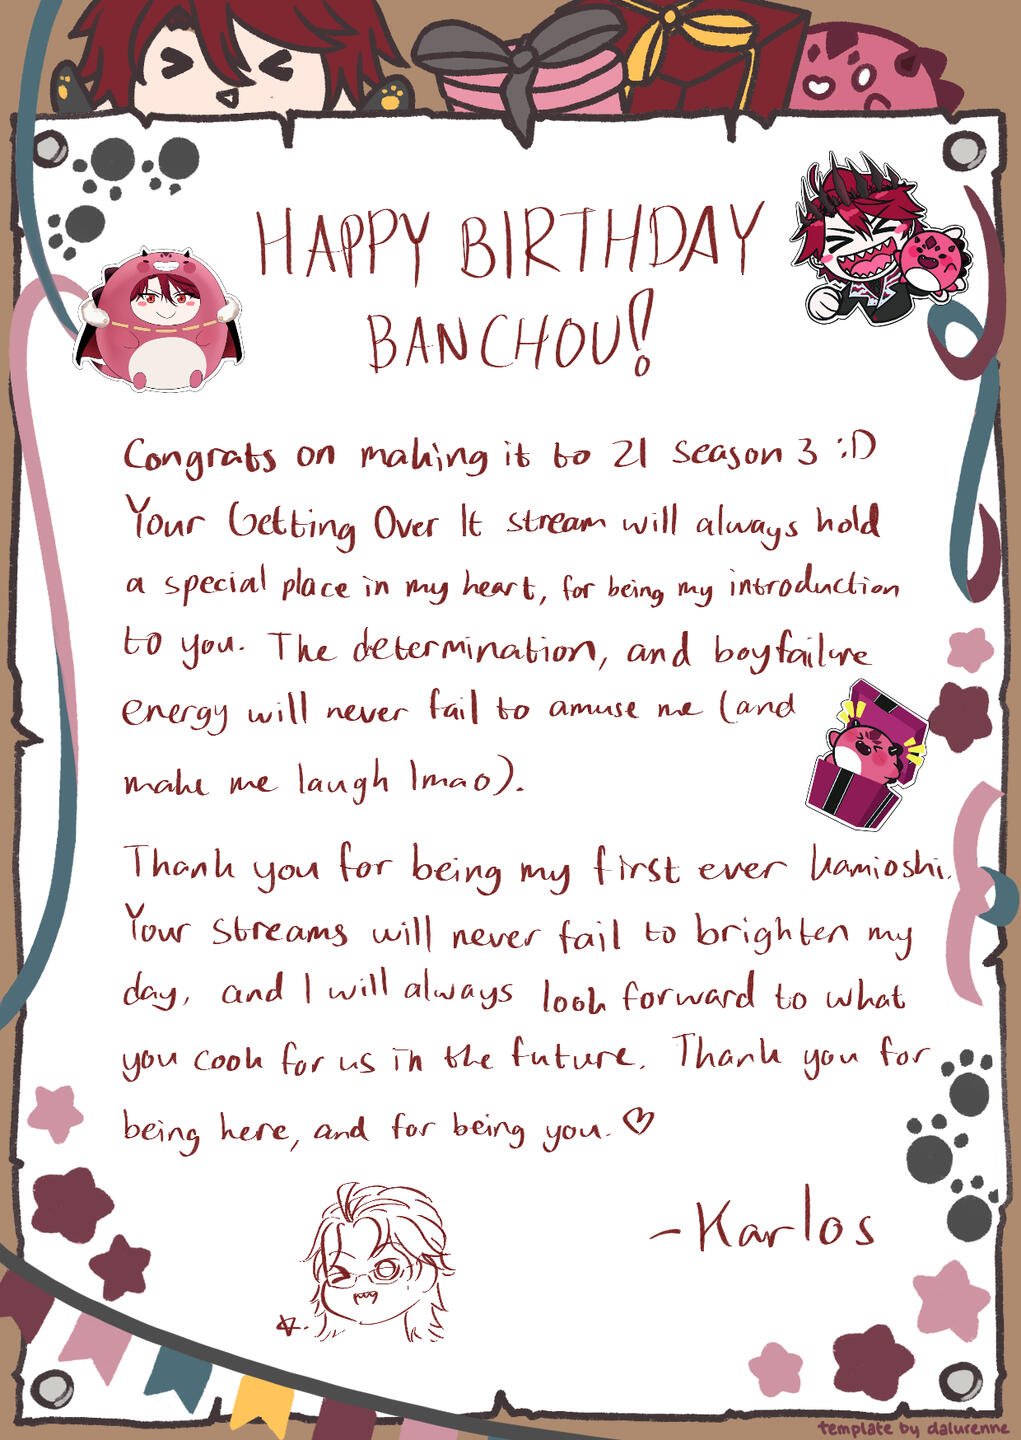 HAPPY BIRTHDAY
BANCHOU!
Congrats on making it to 21 season 3 :D
Your Getting Over It stream will always hold
a special place in my heart, for being my introduction
to you. The determination, and boyfailure
energy will never fail to amuse me (and
make me laugh lmao).
Thank you for being my first ever kamioshi.
Your streams will never fail to brighten my
day, and I will always look forward to what
you cook for us in the future. Thank you for
being here, and for being you. ♡
- Karlos
template by dalurenne